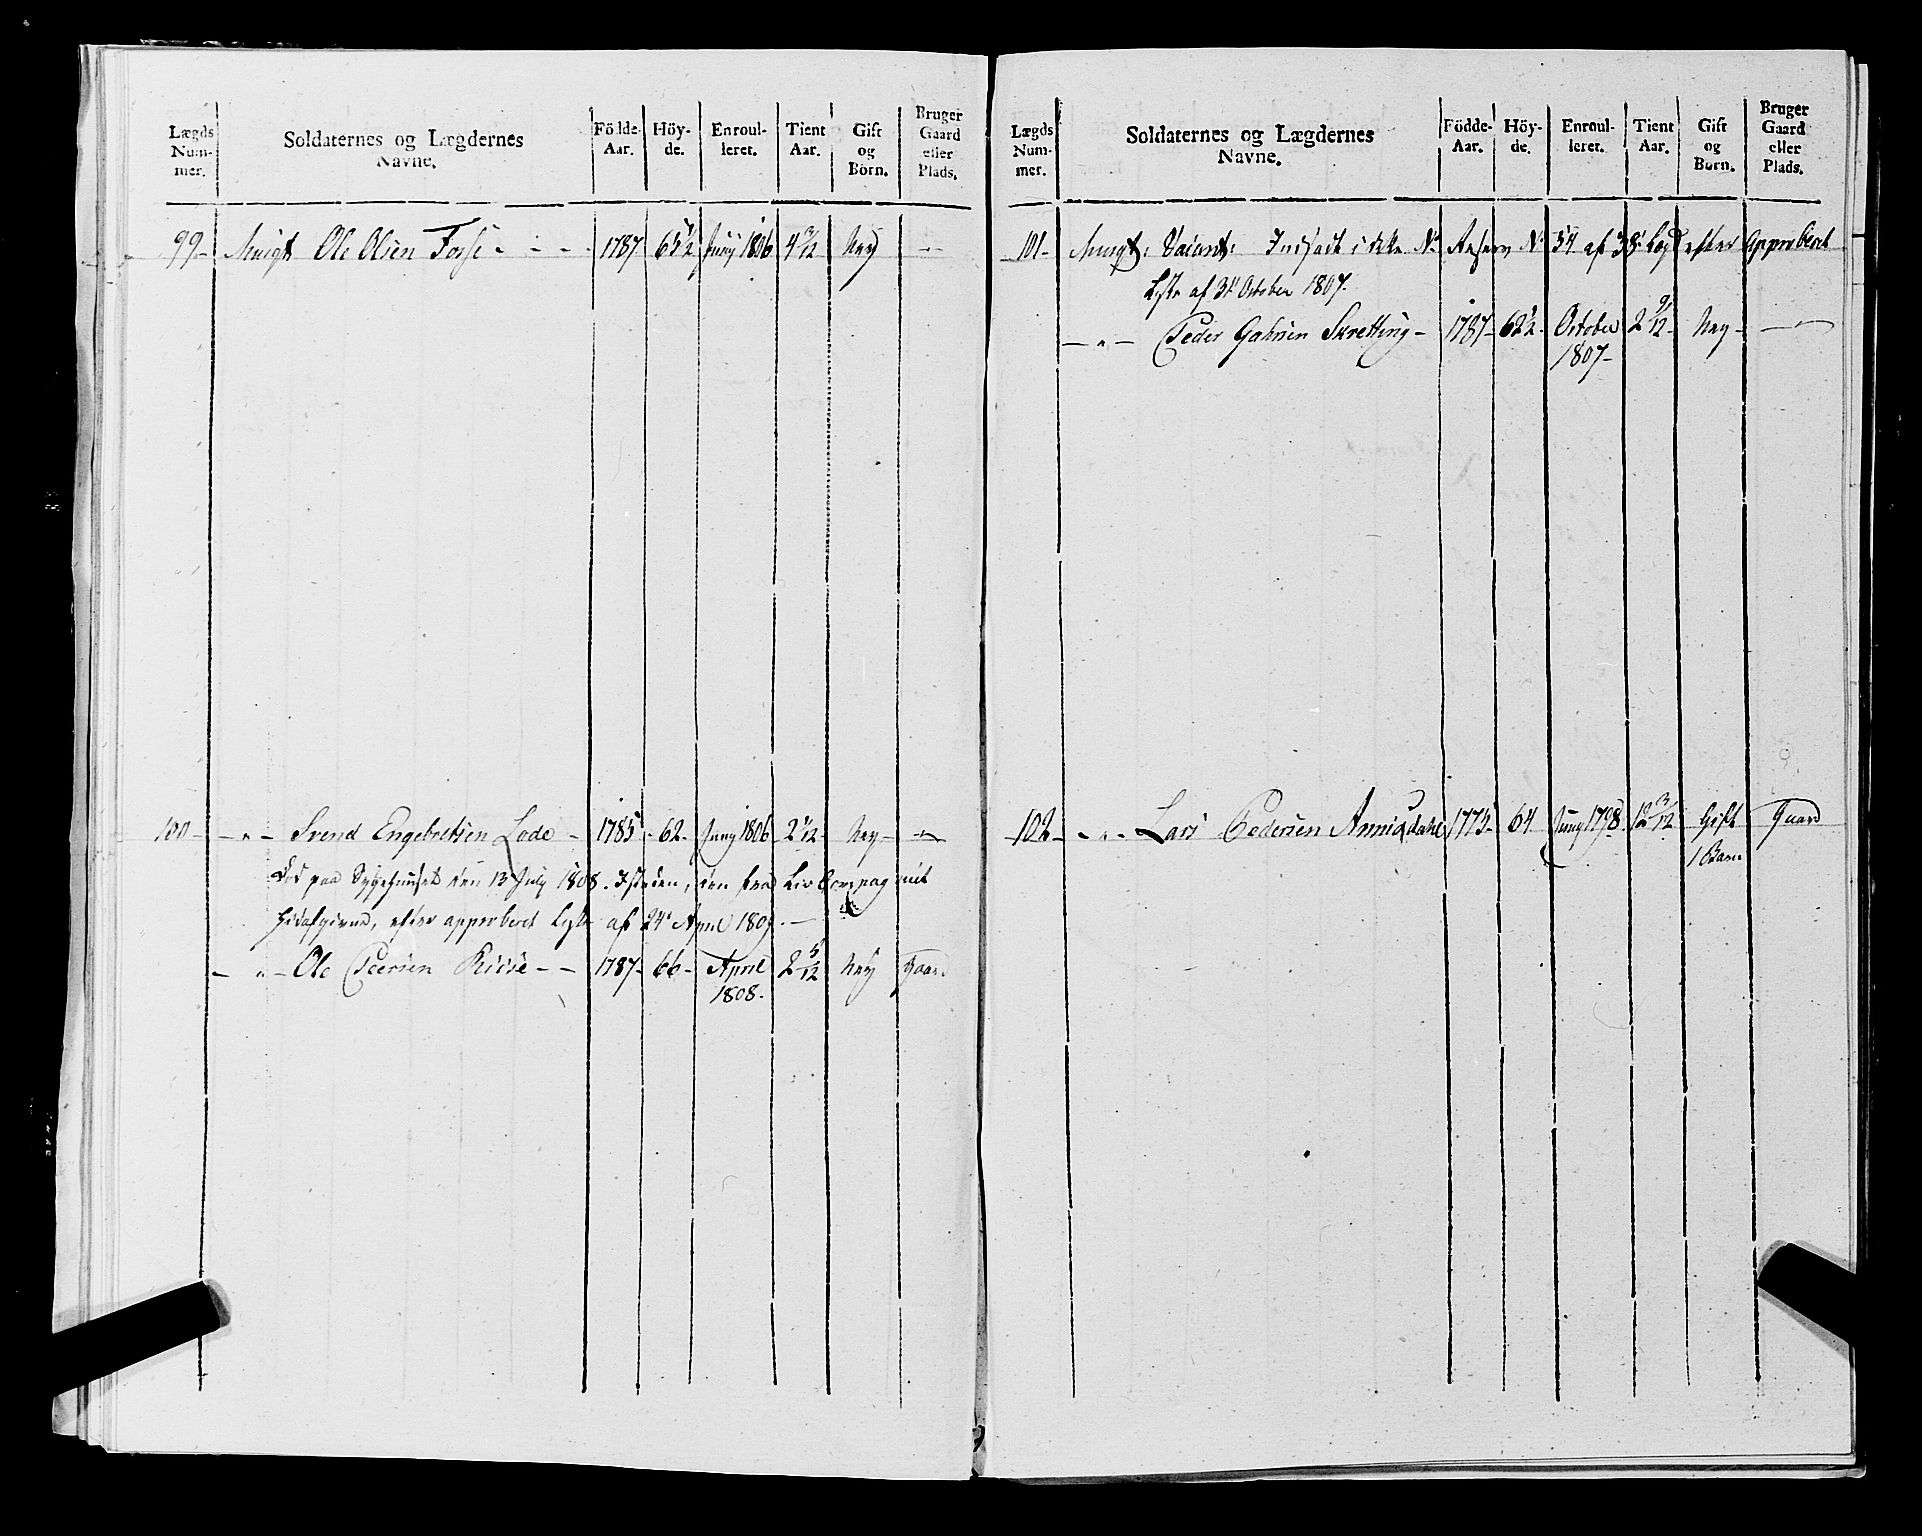 Lægds Num- mer. | Soldaternes og Lægdernes Navne. | Födde- Aar. | Höy- de. | Enroul- leret. | Tient Aar. | Gift og Börn. | Bruger Gaard eller Plads.
99 - Musqt Ole Olsen Fosse - - - 1787 65 1/2 Juny 1806 4 3/12 Ney -
100 - - " - Svend Engebretsen Lode - 1785 - 62 - Juny 1806 2 1/12 Ney - "
Död paa Sygehuuset den 13 July 1808. Isteden, den fra Liv Compag nie
hidafgivne, efter approberet Liste af 24 April 1809. -
- " - Ole Peersen Riise - - 1787 - 66 - April 1808. 2 5/12 Ney Gaard
Lægds Num- mer. | Soldaternes og Lægdernes Navne. | Födde- Aar. | Höy- de. | Enroul- leret. | Tient Aar. | Gift og Börn. | Bruger Gaard eller Plads.
101 - Musqt: Vacant: Indsadt i dette No Reserv No 54 af 38 Lægd efter Approberet
Liste af 31 October 1807.
- " - Peder Gabrien Skretting - 1787 - 62 1/2 - October 1807 - 2 9/12 - Ney -
102 - - " - Lars Pedersen 1775 - 64 Juny 1798 12 3/12 Gift 1 Barn Gaard